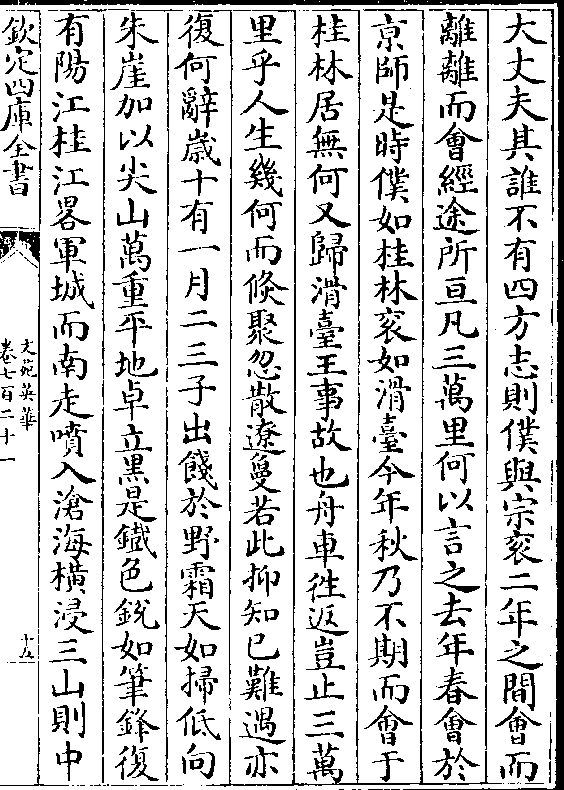 大丈夫其誰不有四方志則僕與宗衮二年之間會而
離離而會經途所亘凡三萬里何以言之去年春會於
京師是時僕如桂林衮如滑臺今年秋乃不期而會于
桂林居無何又歸滑臺王事故也舟車徃返豈止三萬
里乎人生幾何而倐聚忽散遼夐若此抑知已難遇亦
復何辭嵗十有一月二三子出餞於野霜天如掃低向
朱崖加以尖山萬重平地卓立黒是鐵色鋭如筆鋒復
有陽江桂江畧軍城而南走噴入滄海横浸三山則中
欽定四庫全書
文苑英華
卷七百二十一
十五